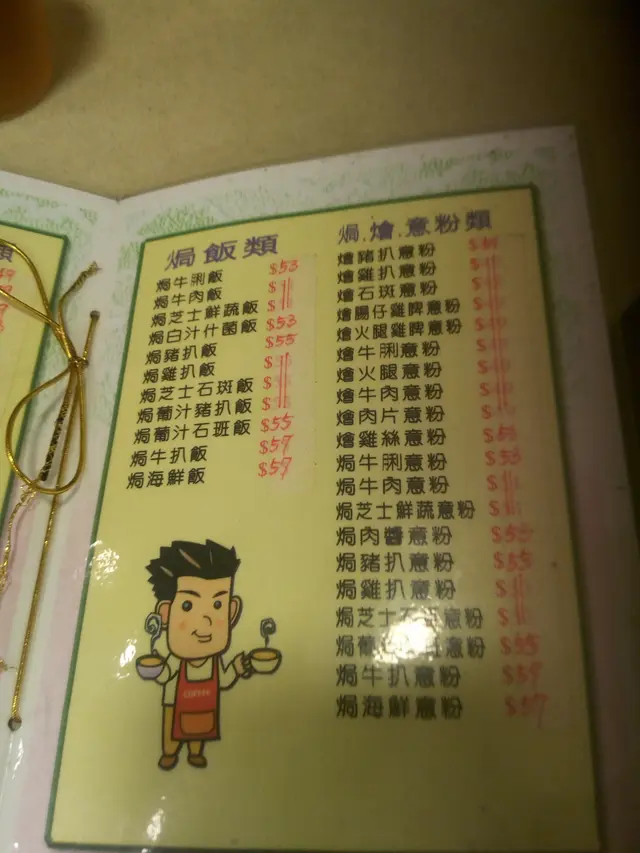 焗飯類
焗牛脷飯 $53
焗牛肉飯 $ ||
焗芝士鮮蔬飯 $ ||
焗白汁什菌飯 $53
焗豬扒飯 $55
焗雞扒飯 $ ||
焗芝士石斑飯 $ ||
焗葡汁豬扒飯 $ ||
焗葡汁石班飯 $55
焗牛扒飯 $57
焗海鮮飯 $57
COFFEE
焗.燴.意粉類
燴豬扒意粉
燴雞扒意粉
燴石斑意粉
燴腸仔雞脾意粉
燴火腿雞脾意粉
燴牛脷意粉
燴火腿意粉
燴牛肉意粉
燴肉片意粉
燴雞絲意粉
焗牛脷意粉 $53
焗牛肉意粉 $ ||
焗芝士鮮蔬意粉 $ ||
焗肉醬意粉 $53
焗豬扒意粉 $55
焗雞扒意粉 $ ||
焗芝士 意粉 $ ||
焗葡 意粉 $55
焗牛扒意粉 $57
焗海鮮意粉 $57